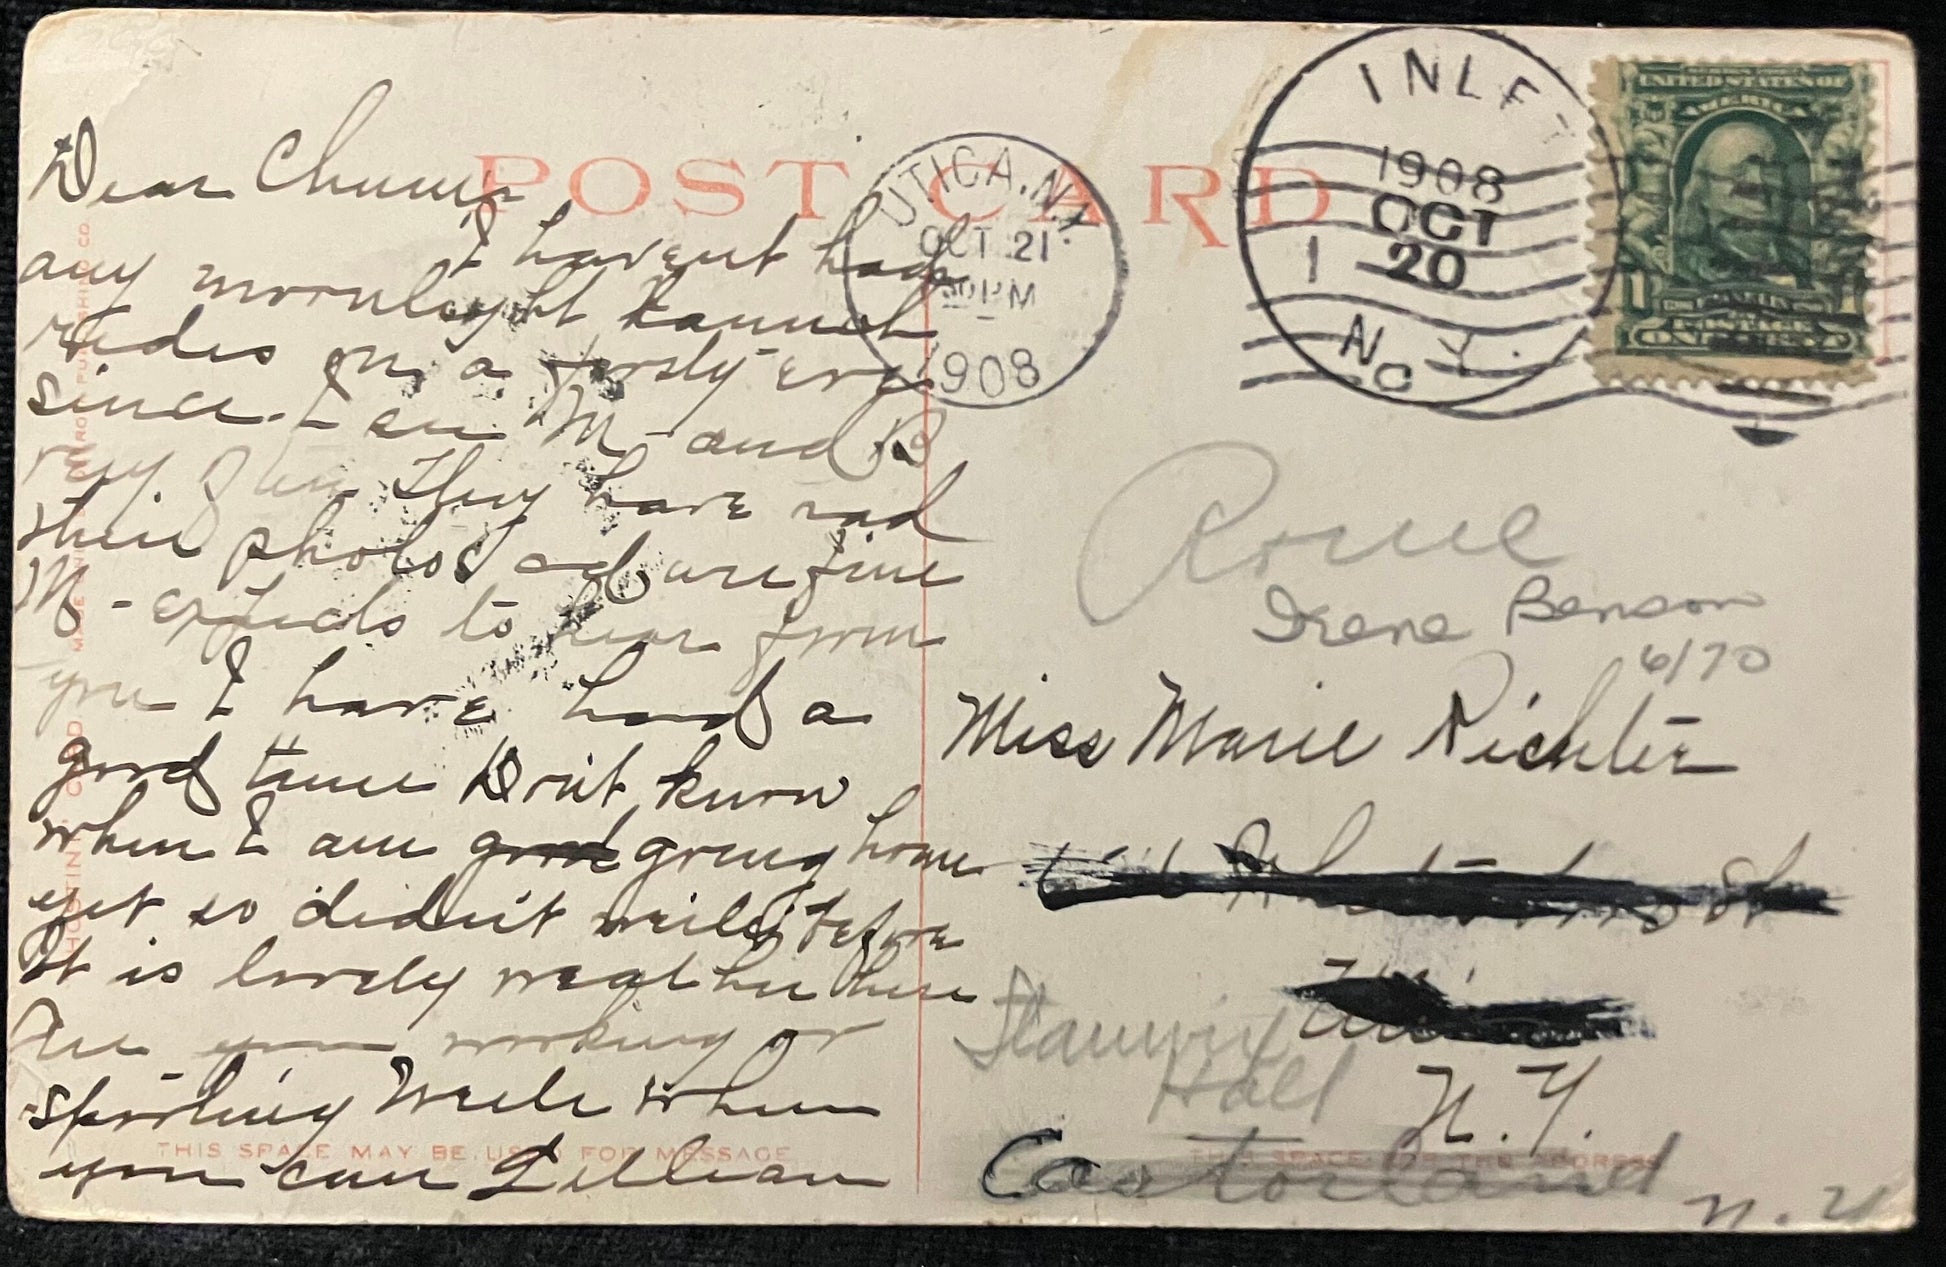 Dear Chump
I havent had
any moonlight launch
rides on a frosty eve
since. I see M- and B
very often They have had
their photos and are fine
M- expects to hear from
you I have had a
good time Don't know
when I am going home
yet so didn't write before
It is lovely weather here
Are you working or
sporting Write when
you can Lillian
POST CARD
THIS SPACE MAY BE USED FOR MESSAGE
UTICA, N.Y.
OCT 21
PM
1908
INLET
1908
OCT
20
N.Y.
UNITED STATES OF
AMERICA
1 1
FRANKLIN
POSTAGE
ONE CENT
Rome
Irene Benson
6/70
Miss Marie Richter
St
Hall
N.Y.
THIS SPACE FOR THE ADDRESS
Castorland
N.Y.